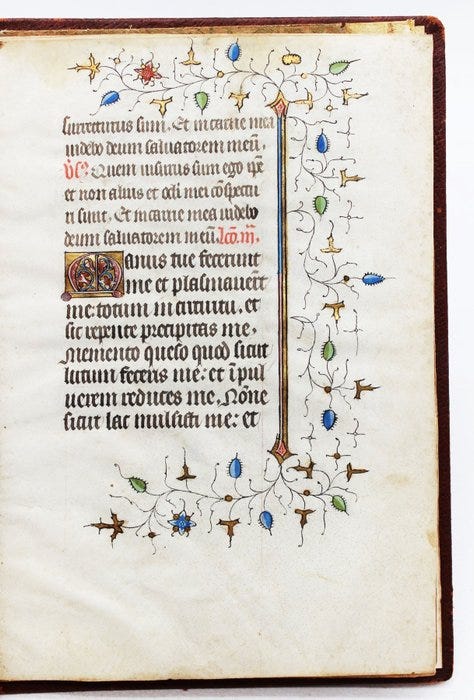 surrecturus sum. Et in carne mea
videbo deum saluatorem meū.
v̄s. Quem visurus sum ego ipē
et non alius et oc̄li mei cōspectu
ri sunt. Et in carne mea videbo
deum saluatorem meū. Lcō. iii.
Manus tue fecerunt
me et plasmauerūt
me: totum in circuitu, et
sic repente precipitas me.
Memento queso quod sicut
lutum feceris me: et ī pul
uerem reduces me. Nōne
sicut lac mulsisti me: et